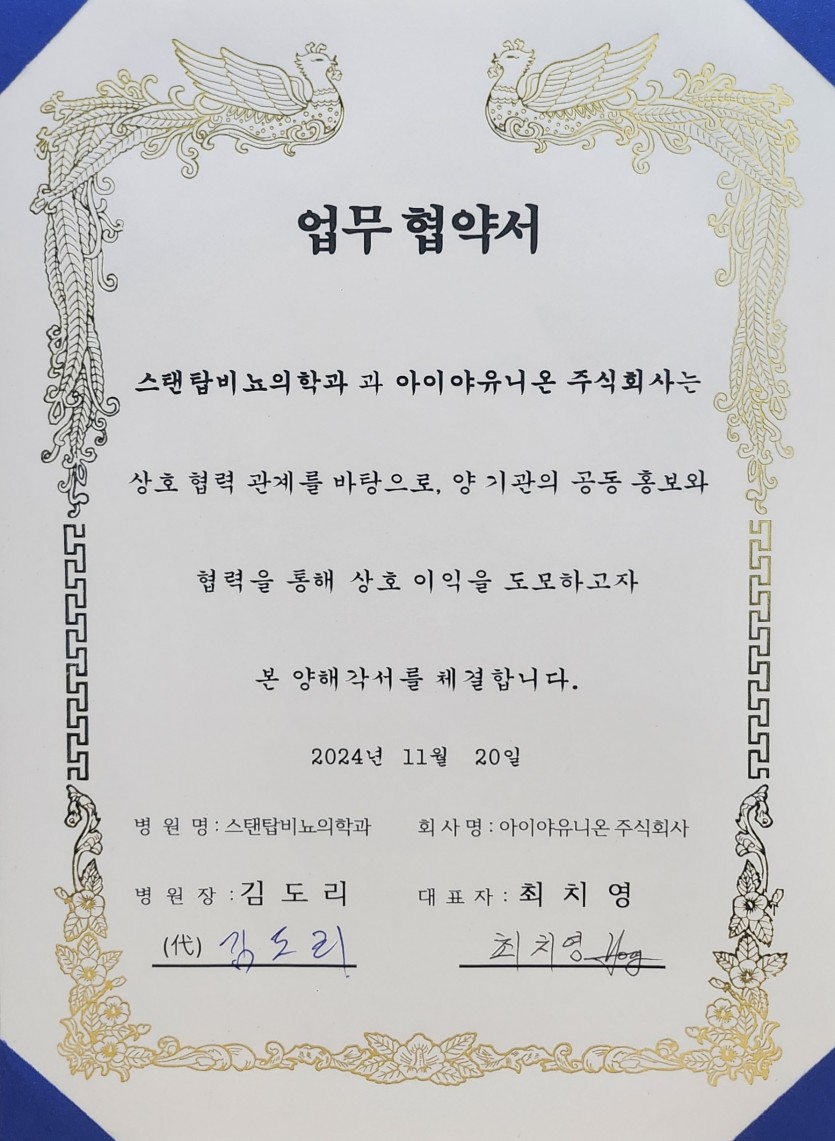 업무 협약서
스탠탑비뇨의학과 과 아이야유니온 주식회사는
상호 협력 관계를 바탕으로, 양 기관의 공동 홍보와
협력을 통해 상호 이익을 도모하고자
본 양해각서를 체결합니다.
2024년 11월 20일
병 원 명 : 스탠탑비뇨의학과 회 사 명 : 아이야유니온 주식회사
병 원 장 : 김 도 리 대 표 자 : 최 치 영
(代) 김 도 리 최 치 영